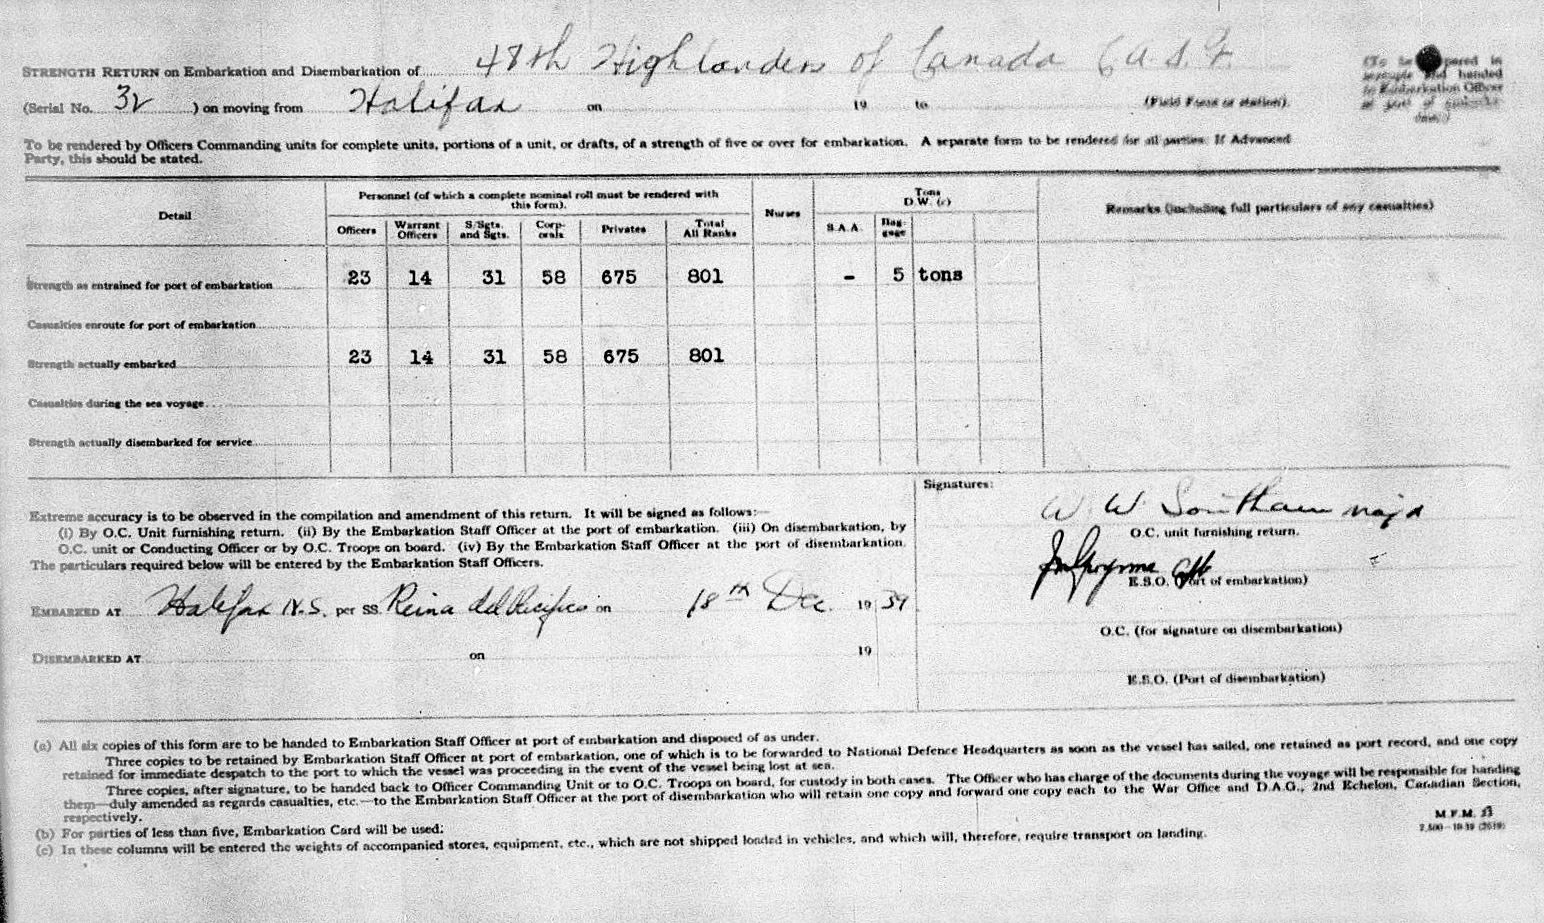 STRENGTH RETURN on Embarkation and Disembarkation of 48th Highlanders of Canada C.A.S.F.
(To be prepared in
and handed
to Embarkation Officer
as part of
(Serial No. 32 ) on moving from Halifax on 19 to (Field Force or station).
To be rendered by Officers Commanding units for complete units, portions of a unit, or drafts, of a strength of five or over for embarkation. A separate form to be rendered for all parties. If Advanced
Party, this should be stated.
Detail
Personnel (of which a complete nominal roll must be rendered with
this form).
Nurses
Tons
D.W. (c)
Remarks (including full particulars of any casualties)
Officers Warrant Officers S/Sgts. and Sgts. Corporals Privates Total All Ranks S.A.A. Baggage
Strength as entrained for port of embarkation 23 14 31 58 675 801 - 5 tons
Casualties enroute for port of embarkation
Strength actually embarked 23 14 31 58 675 801
Casualties during the sea voyage
Strength actually disembarked for service
Extreme accuracy is to be observed in the compilation and amendment of this return. It will be signed as follows:—
(i) By O.C. Unit furnishing return. (ii) By the Embarkation Staff Officer at the port of embarkation. (iii) On disembarkation, by
O.C. unit or Conducting Officer or by O.C. Troops on board. (iv) By the Embarkation Staff Officer at the port of disembarkation.
The particulars required below will be entered by the Embarkation Staff Officers.
EMBARKED AT Halifax N.S. per SS. Reina del Pacifico on 18th Dec. 1939
DISEMBARKED AT on 19
Signatures:
W W Southam Major
O.C. unit furnishing return.
E.S.O. (Port of embarkation)
O.C. (for signature on disembarkation)
E.S.O. (Port of disembarkation)
(a) All six copies of this form are to be handed to Embarkation Staff Officer at port of embarkation and disposed of as under.
Three copies to be retained by Embarkation Staff Officer at port of embarkation, one of which is to be forwarded to National Defence Headquarters as soon as the vessel has sailed, one retained as port record, and one copy
retained for immediate despatch to the port to which the vessel was proceeding in the event of the vessel being lost at sea.
Three copies, after signature, to be handed back to Officer Commanding Unit or to O.C. Troops on board, for custody in both cases. The Officer who has charge of the documents during the voyage will be responsible for handing
them—duly amended as regards casualties, etc.—to the Embarkation Staff Officer at the port of disembarkation who will retain one copy and forward one copy each to the War Office and D.A.G., 2nd Echelon, Canadian Section,
respectively.
(b) For parties of less than five, Embarkation Card will be used.
(c) In these columns will be entered the weights of accompanied stores, equipment, etc., which are not shipped loaded in vehicles, and which will, therefore, require transport on landing.
M.F.M.
2,500—10-39 (2619)